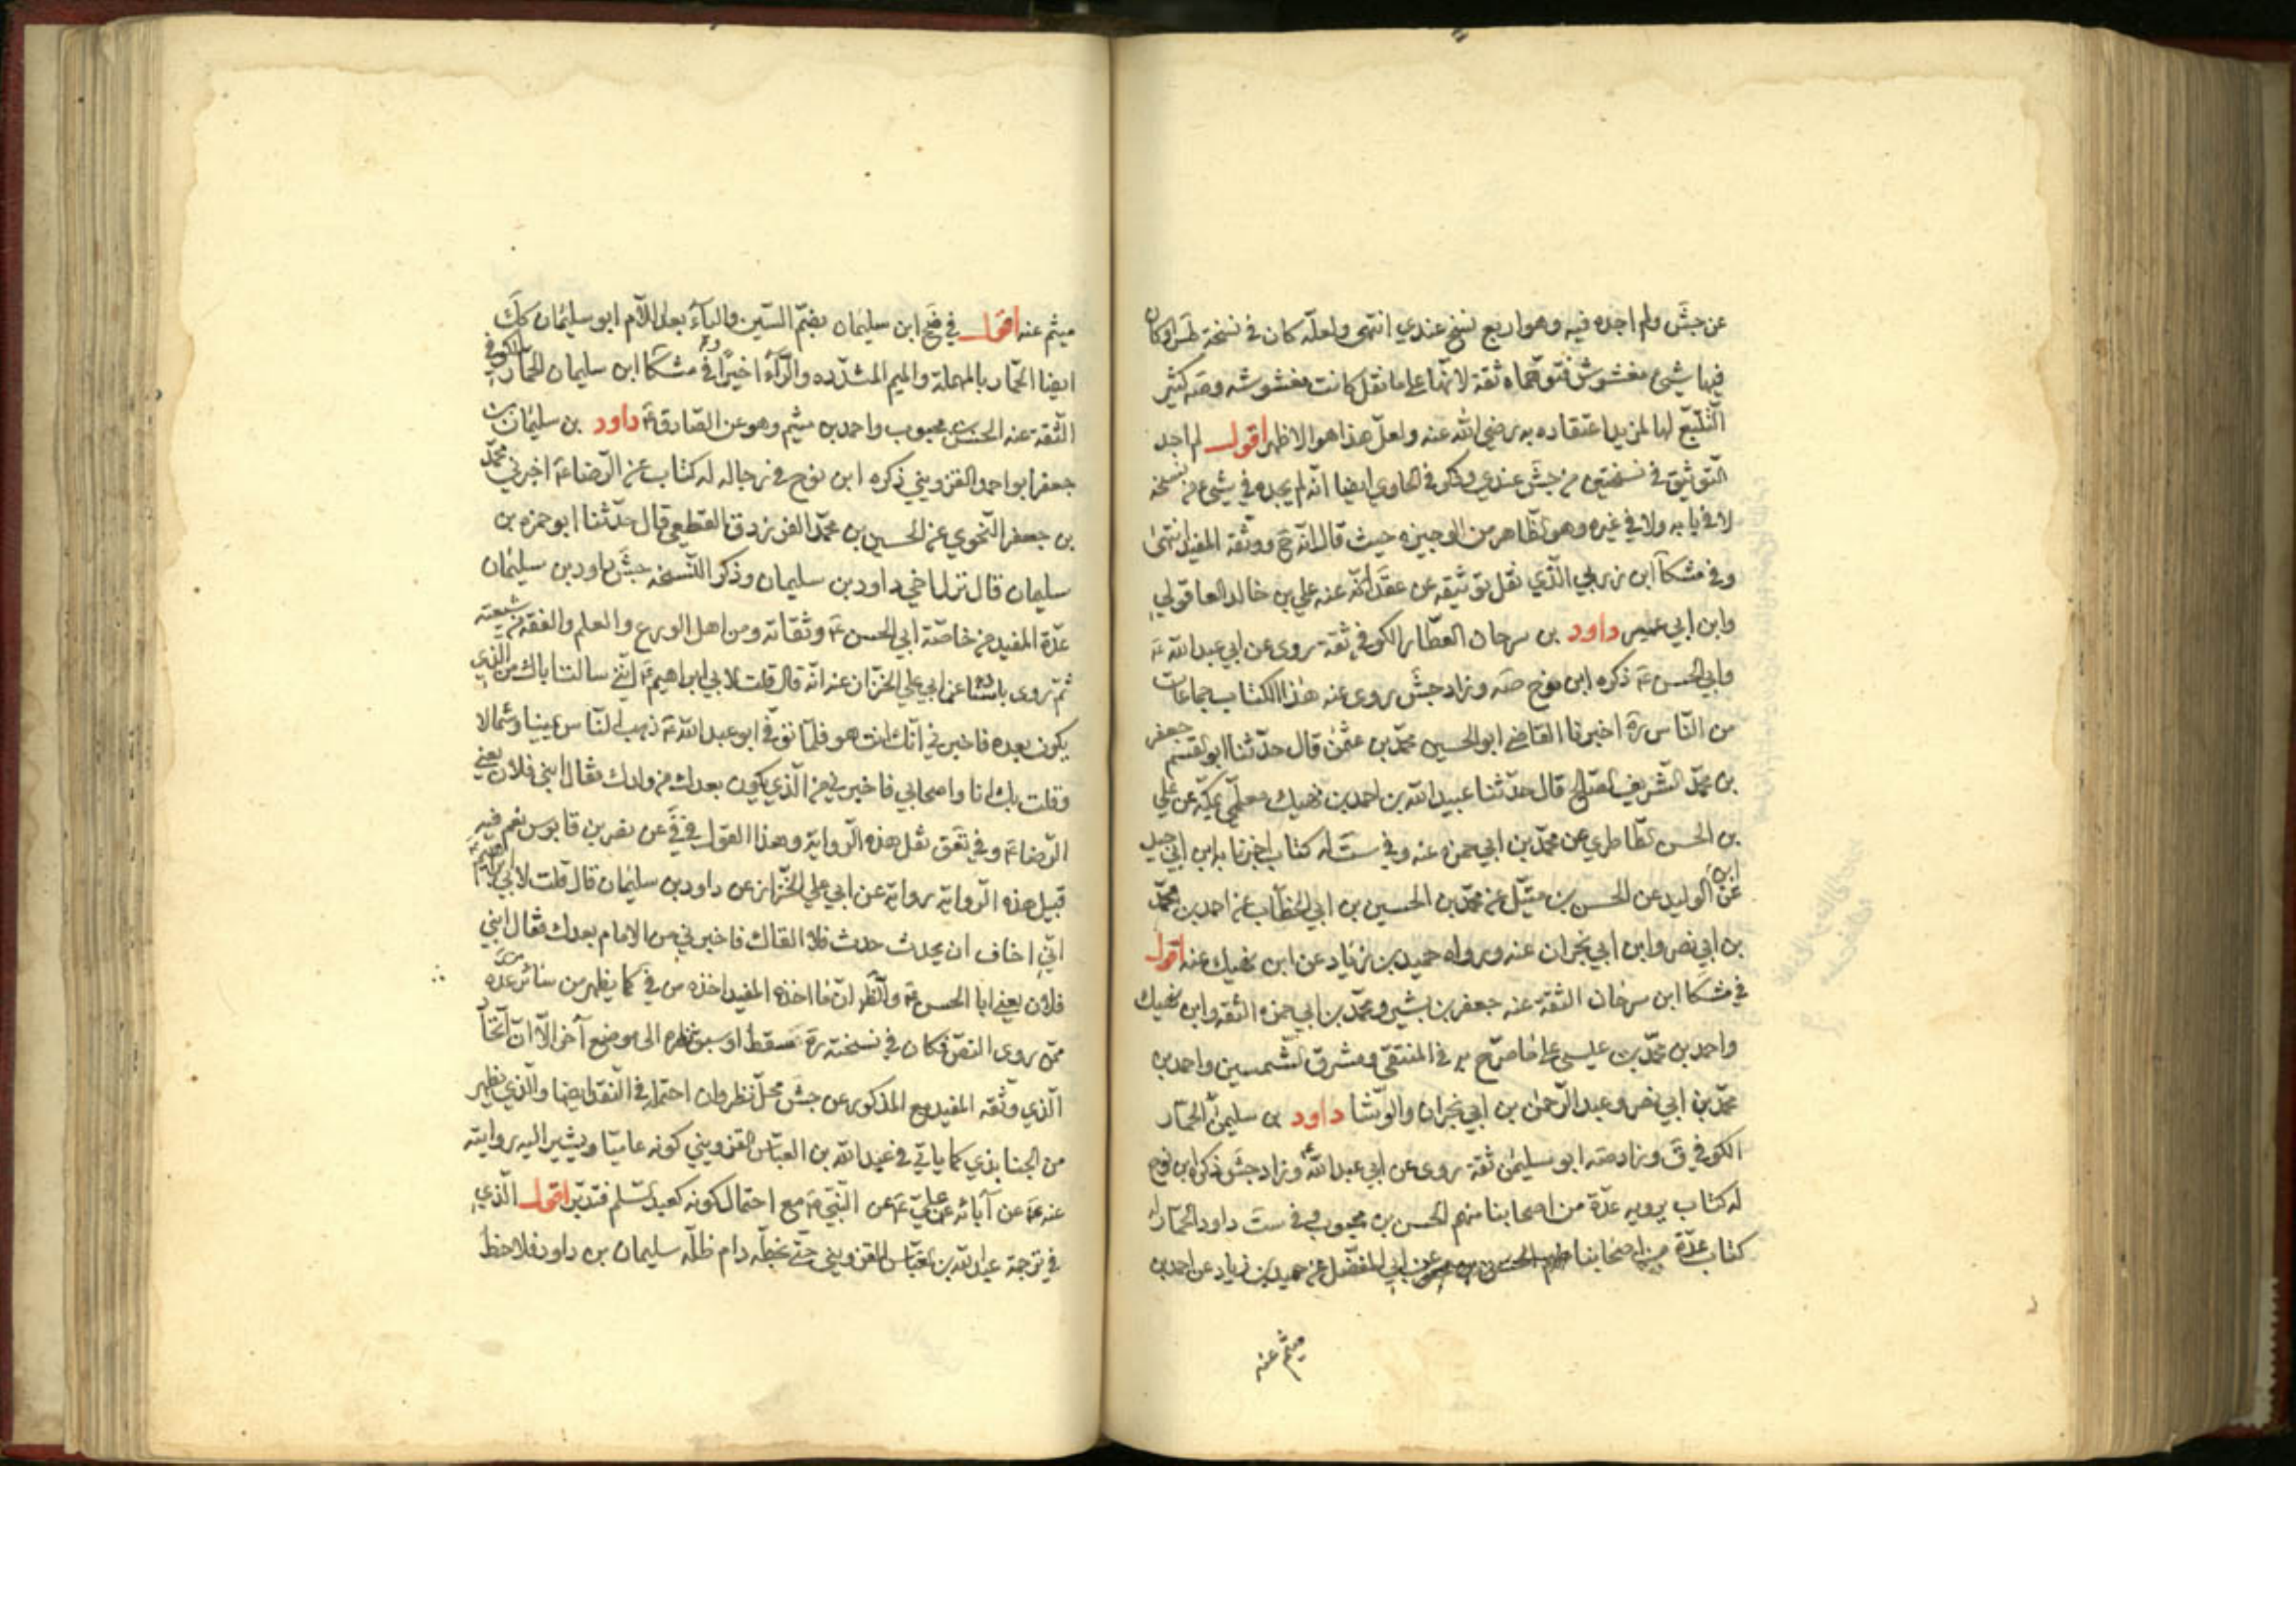 عن جش ولم اجده فيه وهو اربع نسخ عندي انتهى ولعله كان في نسخة طس وكان
فيها شيئ مغشوش فتوهماه ثقة لانها على ما نقل كانت مغشوشه وصه كثير
التتبع لها لمزيد اعتقاده به رضي الله عنه ولعل هذا هو الاظهر اقول لم اجد
التوثيق في نسختين من جش عندي وذكر في الحاوي ايضا انه لم يجده في شيئ من نسخه
لا في بابه ولا في غيره وهو الظاهر من الوجيزه حيث قال انه ووثقه المفيد انتهى
وفي مشكا ابن زربي الذي نقل توثيقه عن عقد انه عنه علي بن خالد العاقولي
وابن ابي عمير داود بن سرحان العطار الكوفي ثقة روى عن ابي عبد الله ع
وابي الحسن ع ذكره ابن نوح صه وزاد جش روى عنه هذا الكتاب جماعات
من الناس ره اخبرنا القاضي ابو الحسين محمد بن عثمن قال حدثنا ابو القسم جعفر
بن محمد الشريف الصالح قال حدثنا عبيد الله بن احمد بن نهيك معلمي بمكه عن علي
بن الحسن الطاطري عن محمد بن ابي حمزه عنه وفي ست له كتاب اخبرنا به ابن ابي جيد
عن ابن الوليد عن الحسن بن متيل عن محمد بن الحسين بن ابي الخطاب عن احمد بن محمد
بن ابي نصر وابن ابي نجران عنه ورواه حميد بن زياد عن ابن نهيك عنه اقول
في مشكا ابن سرحان الثقة عنه جعفر بن بشير ومحمد بن ابي حمزه الثقه وابن نهيك
واحمد بن محمد بن عيسى على ما صرح به في المنتقى ومشرق الشمسين واحمد بن
محمد بن ابي نصر وعبد الرحمن بن ابي نجران والوشا داود بن سليمن الحمار
الكوفي ق وزاد صه ابو سليمن ثقة روى عن ابي عبد الله ع وزاد جش ذكره ابن نوح
له كتاب يرويه عدة من اصحابنا منهم الحسن بن محبوب وفي ست داود الحمار له
كتاب عدة من اصحابنا عن ابي المفضل عن حميد بن زياد عن احمد بن
ميثم عنه
ميثم عنه اقول في ضح ابن سليمان بضم السين والياء بعد اللام ابو سليمان
ايضا الحمار بالمهملة والميم المشدده والراء اخيرا وفي مشكا ابن سليمان الحمار الكوفي
الثقة عنه الحسن بن محبوب واحمد بن ميثم وهو عن الصادق ع داود بن سليمان بن
جعفر ابو احمد القزويني ذكره ابن نوح في رجاله له كتاب عن الرضا ع اخبرني محمد
بن جعفر النحوي عن الحسين بن محمد الفرزدق القطعي قال حدثنا ابو حمزه بن
سليمان قال نزل اخي داود بن سليمان وذكر النسخه جش داود بن سليمان
عده المفيد من خاصة ابي الحسن ع وثقاته ومن اهل الورع والعلم والفقه من شيعته
ثم روى باسناده عن ابي علي الخزاز عنه انه قال قلت لابي ابراهيم ع اني سالت اباك من الذي
يكون بعده فاخبرني انك انت هو فلما توفي ابو عبد الله ع ذهب الناس يمينا وشمالا
وقلت بك انا واصحابي فاخبرني من الذي يكون بعدك من ولدك فقال ابني فلان يعني
الرضا ع وفي تعق نقل هذه الرواية وهذا القول في عن نصر بن قابوس نعم فيه
قبيل هذه الرواية رواية عن ابي علي الخزاز عن داود بن سليمان قال قلت لابي ابراهيم ع
اني اخاف ان يحدث حدث فلا القاك فاخبرني من الامام بعدك فقال ابني
فلان يعني ابا الحسن ع والظاهر ان ما اخذه المفيد اخذه من في كما يظهر من سائر من عده
ممن روى النص فكان في نسخته ره سقط او سبق نظره الى موضع آخر الا ان اتحاد
الذي وثقه المفيد مع المذكور عن جش محل نظر وان احتمل في النقد ايضا والذي يظهر
من الجنابذي كما ياتي في عبد الله بن العباس القزويني كونه عاميا ويشير اليه روايته
عنه ع عن آبائه عن علي ع عن النبي ص مع احتمال كونه كعبد السلم فتدبر اقول الذي
في ترجمة عبد الله بن العباس القزويني حتى بخطه دام ظله سليمان بن داود فلاحظ